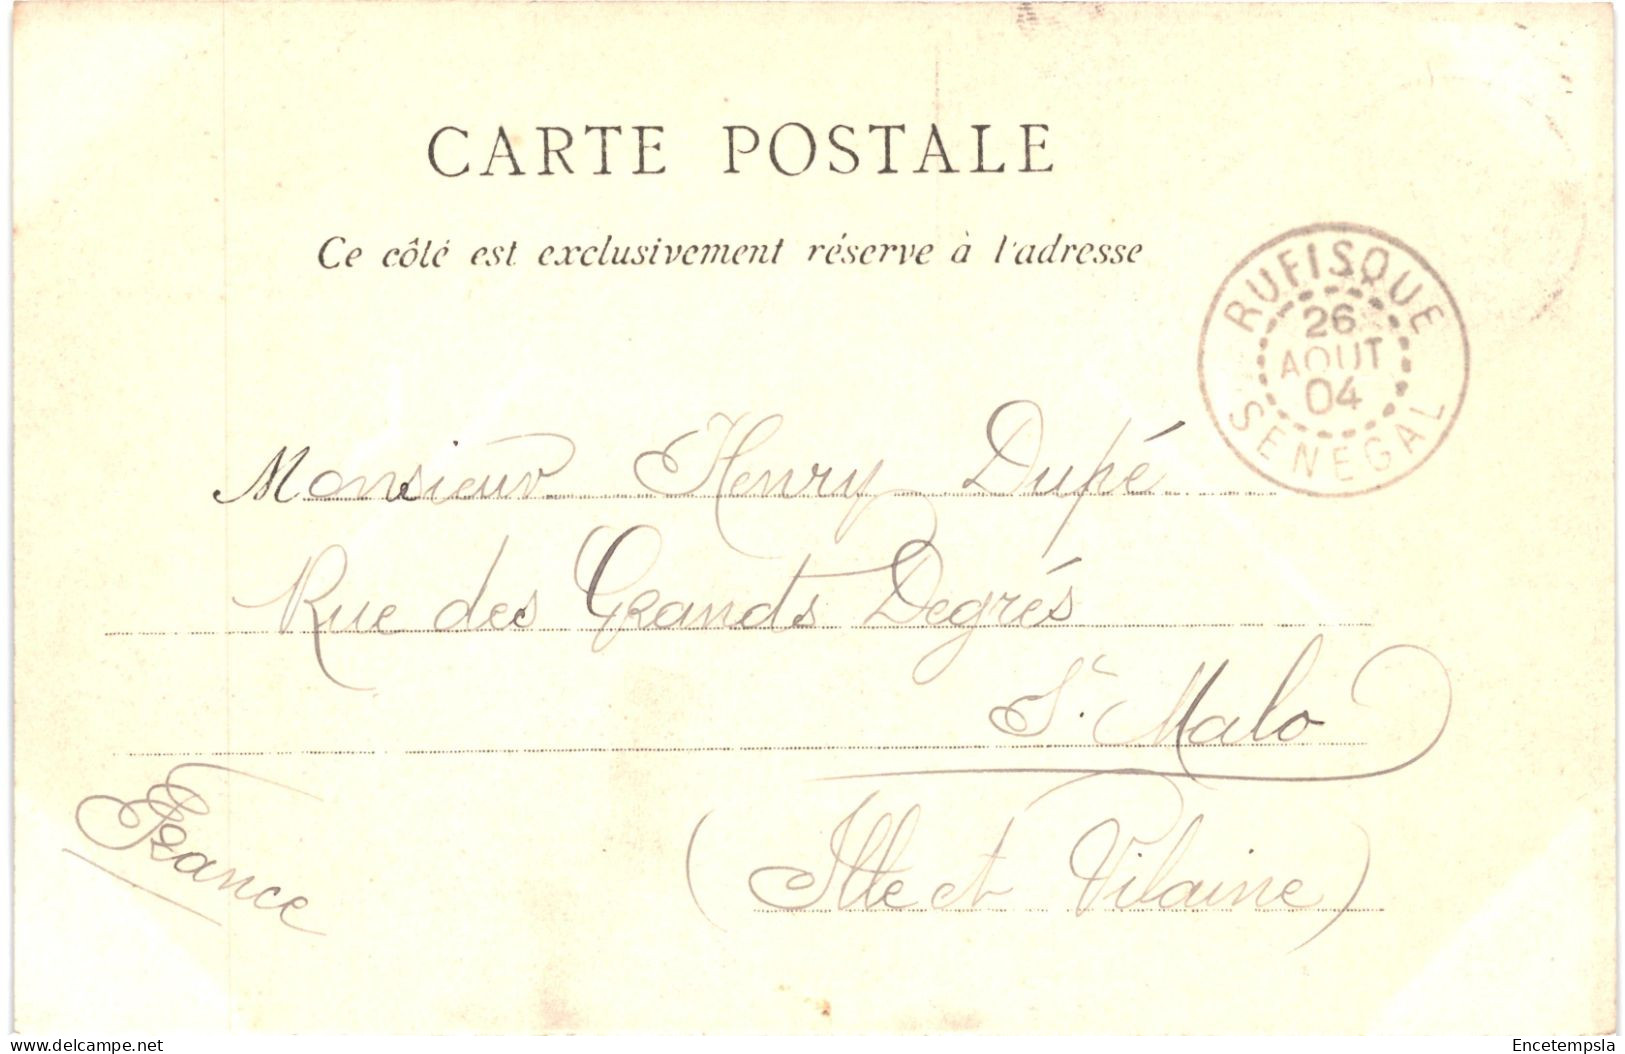 CARTE POSTALE
Ce côté est exclusivement réserve à l'adresse
RUFISQUE
26
AOUT
04
SENEGAL
Monsieur Henry Dupé
Rue des Grands Degrés
St. Malo
(Ille et Vilaine)
France
www.delcampe.net
Encetempsla